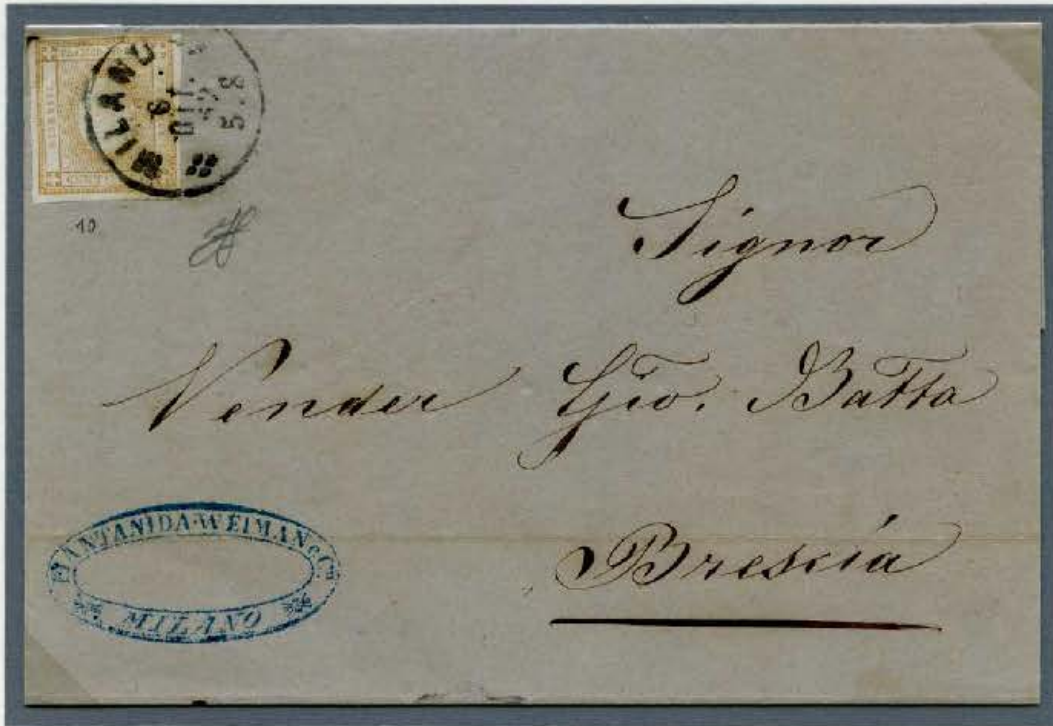 MILANO
6
5.8
10
Signor
Vender Gio. Batta
Brescia
PIANTANIDA WEIMAN e C.
MILANO